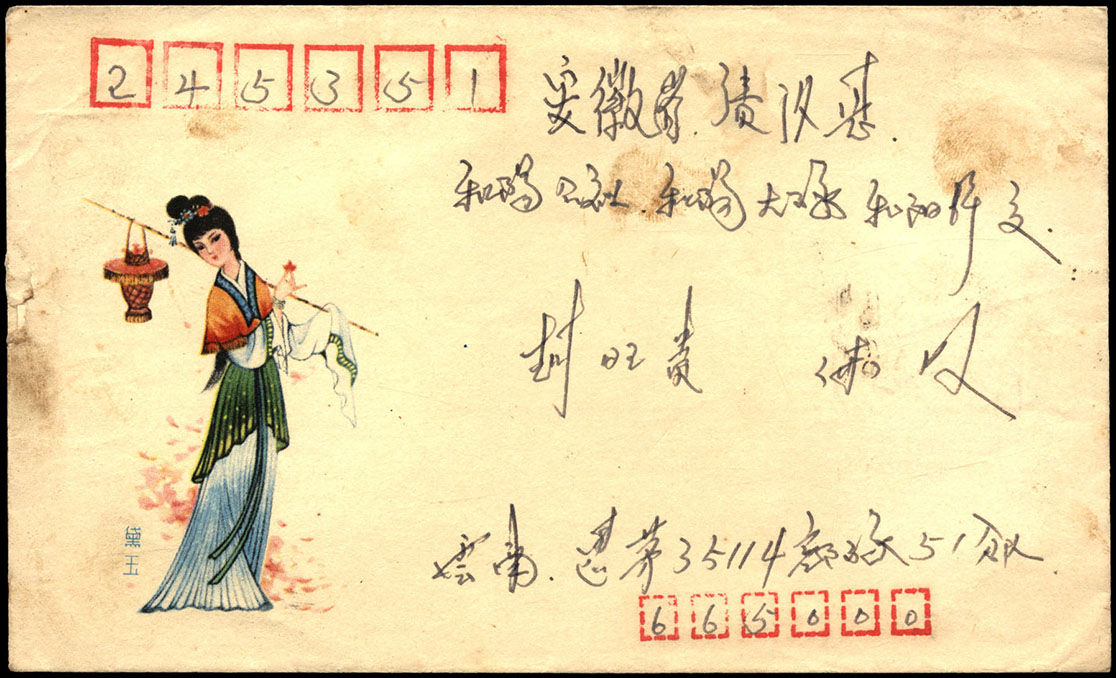 245351
安徽省.绩溪县.
和阳公社.和阳大队和阳
旺贵 收
雲南.思茅35114部队51分队
665000
黛玉